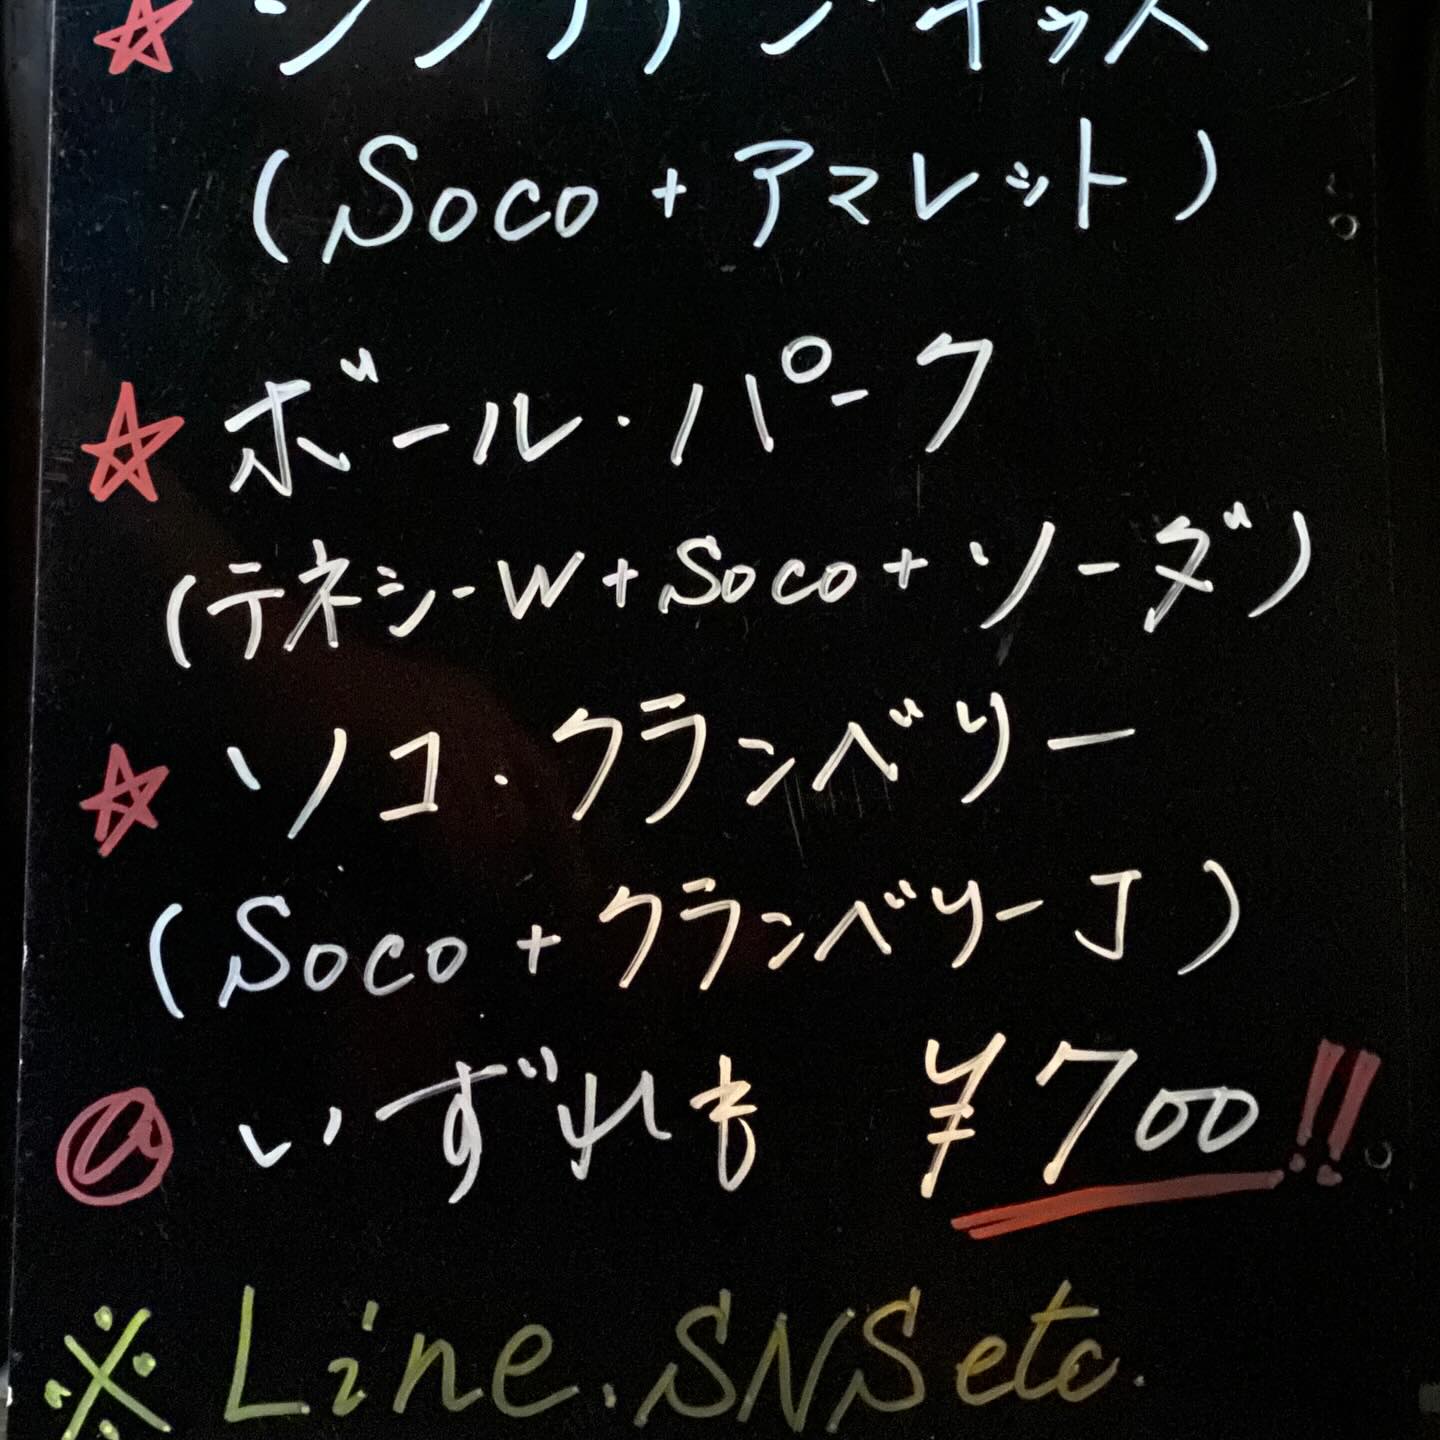 ★シシリアン・キッス
(Soco+アマレット)
★ボール・パーク
(テネシーW+Soco+ソーダ)
★ソコ・クランベリー
(Soco+クランベリーJ)
いずれも ¥700!!
※Line.SNSetc.